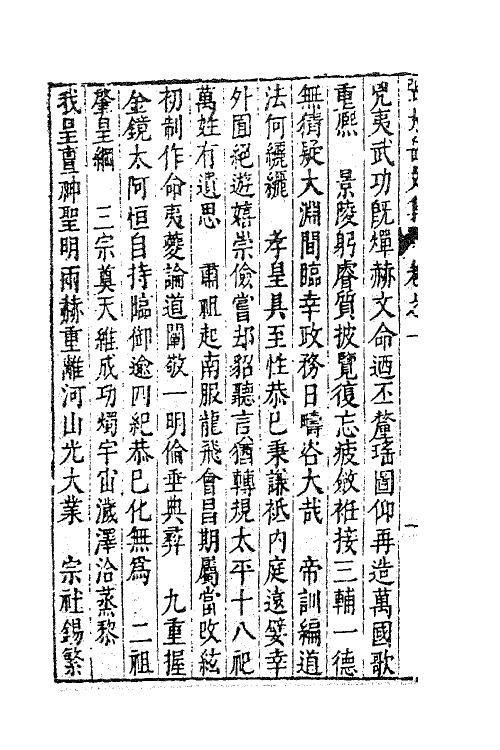 張太岳文集 卷之一
兕夷武功既燀赫文命迺丕釐瑤圖仰再造萬國歌
重熙 景陵躬睿質披覽復忘疲斂袵接三輔一德
無猜疑大淵間臨幸政務日疇咨大哉 帝訓編道
法何纚纚 孝皇具至性恭巳秉謙祗內庭遠嬖幸
外囿絕遊嬉崇儉嘗却貂聽言猶轉規太平十八祀
萬姓有遺思 肅祖起南服龍飛會昌期屬當改絃
初制作命夷夔論道闡敬一明倫垂典彝 九重握
金鏡太阿恒自持臨御逾四紀恭巳化無爲 二祖
肇皇綱 三宗奠天維成功燭宇宙濊澤洽蒸黎
我皇亶神聖明兩赫重離河山光大業 宗社錫繁